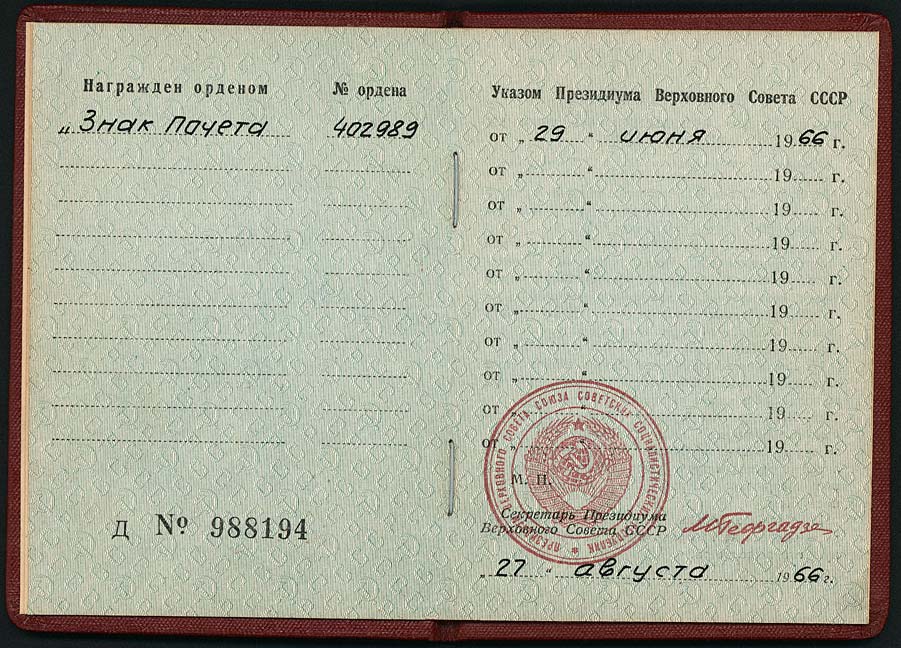 Награжден орденом № ордена
„Знак Почета 402989
Д № 988194
Указом Президиума Верховного Совета СССР
от „ 29 “ июня 1966 г.
от „ “ 19 г.
от „ “ 19 г.
от „ “ 19 г.
от „ “ 19 г.
от „ “ 19 г.
от „ “ 19 г.
от „ “ 19 г.
от „ “ 19 г.
от „ “ 19 г.
М. П.
Секретарь Президиума
Верховного Совета СССР М Георгадзе
„ 27 “ августа 1966 г.
ПРЕЗИДИУМ ВЕРХОВНОГО СОВЕТА СОЮЗА СОВЕТСКИХ СОЦИАЛИСТИЧЕСКИХ РЕСПУБЛИК